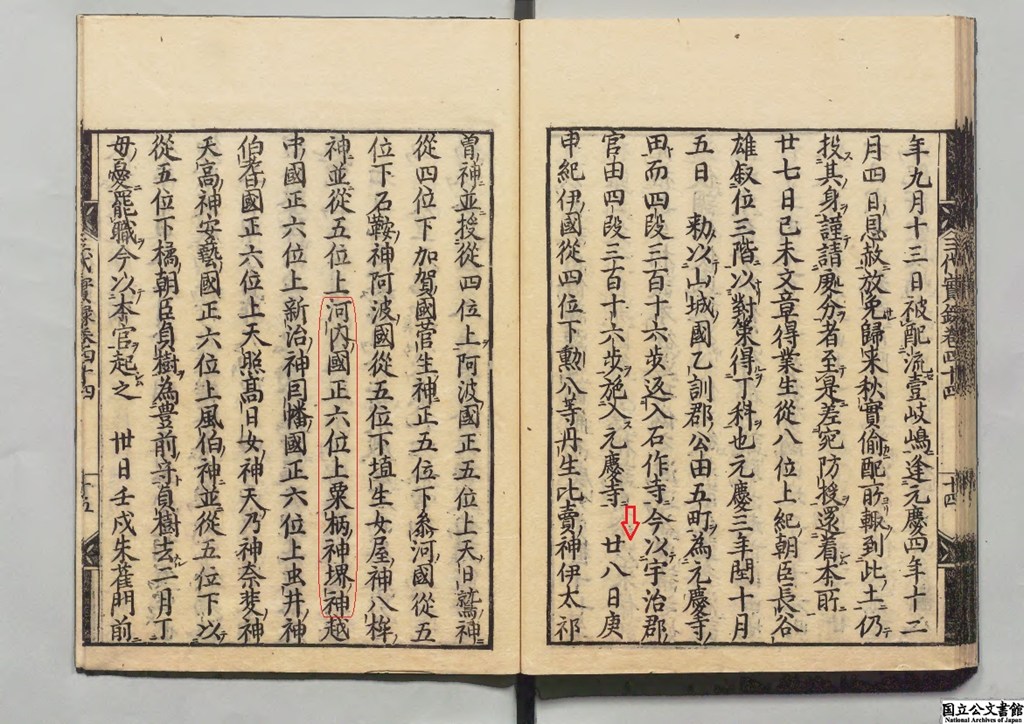 年九月十三日被配流壹岐嶋逢元慶四年十二
月四日恩赦放免歸来秋實偷配所輙到此土仍
投其身謹請處分者至是差宛防援還着本所
廿七日己未文章得業生從八位上紀朝臣長谷
雄叙位三階以對策得丁科也元慶三年閏十月
五日　勅以山城國乙訓郡公田五町為元慶寺
田而四段三百十六歩返入石作寺今以宇治郡
官田四段三百十六歩施入元慶寺　廿八日庚
申紀伊國從四位下勲八等丹生比賣神伊太祁
曾神並授從四位上阿波國正五位上天日鷲神
從四位下加賀國菅生神正五位下參河國從五
位下石鞍神阿波國從五位下埴生女屋神八桙
神並從五位上河内國正六位上粟柄神堺神越
中國正六位上新治神因幡國正六位上虫井神
伯耆國正六位上天照高日女神天乃神奈斐神
天高神安藝國正六位上風伯神並從五位下以
從五位下橘朝臣貞樹為豊前守貞樹去二月丁
母憂罷職今以本官起之　卅日壬戌朱雀門前
三代實録巻四十四
十四
三代實録巻四十四
十五
国立公文書館
National Archives of Japan